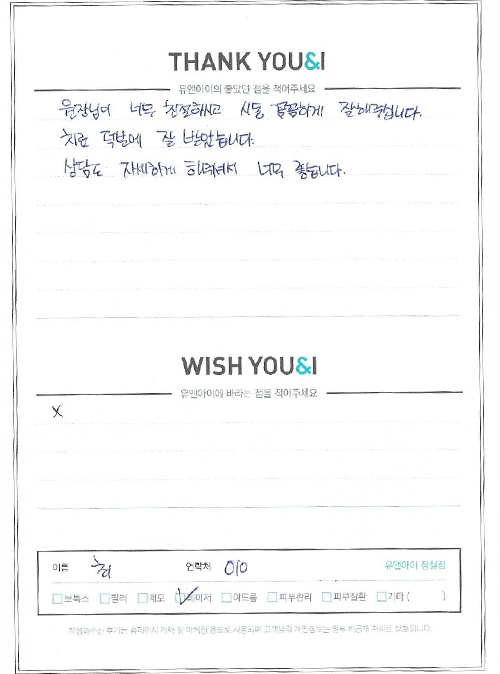 THANK YOU&I
유앤아이의 좋았던 점을 적어주세요
원장님이 너무 친절하시고 시술 꼼꼼하게 잘해주십니다.
치료 덕분에 잘 받았습니다.
상담도 자세하게 해주셔서 너무 좋습니다.
WISH YOU&I
유앤아이에 바라는 점을 적어주세요
X
이름 최 연락처 010 유앤아이 잠실점
보톡스 필러 제모 레이저 여드름 피부관리 피부질환 기타 ( )
작성해주신 후기는 홈페이지 게재 및 마케팅 용도로 사용되며 고객님의 개인정보는 일부 비공개 처리로 보호됩니다.